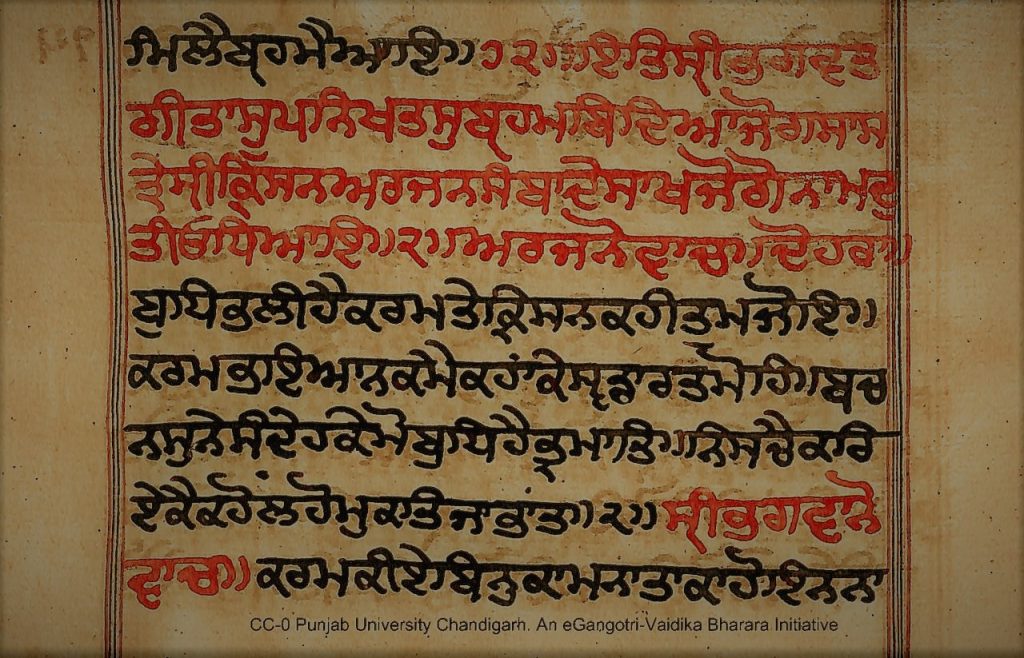 ਮਿਲੈਬ੍ਰਹਮੈਆਇ॥੭੨॥ਇਤਿਸ੍ਰੀਭਗਵਤ
ਗੀਤਾਸੁਪਨਿਖਤਸੁਬ੍ਰਹਮਬਿਦਿਆਜੋਗਸਾਸ
ਤ੍ਰੇਸ੍ਰੀਕ੍ਰਿਸਨਅਰਜਨਸੰਬਾਦੇਸਾਖਜੋਗੋਨਾਮਦੁ
ਤੀਓਧਿਆਇ॥੨॥ਅਰਜਨੋਵਾਚ॥ਦੋਹਰਾ॥
ਬੁਧਿਭਲੀਹੈਕਰਮਤੇਕ੍ਰਿਸਨਕਹੀਤੁਮਜੋਇ॥
ਕਰਮਭਾਇਆਨਕਮੈਕਹਾਂਕੇਸ੍ਵਡਾਰਤਮੋਹਿ॥ਬਚ
ਨਸੁਨੇਸੰਦੇਹਕੇਮੋਬੁਧਿਹੈਭ੍ਰਮਾਤਿ॥ਨਿਸਚੈਕਰਿ
ਏਕੈਕਹੋਂਲਹੋਮੁਕਤਿਜਾਭਾਂਤ॥੨॥ਸ੍ਰੀਭਗਵਾਨੋ
ਵਾਚ॥ਕਰਮਕੀਏਬਿਨੁਕਾਮਨਾਤਾਕਾਹੋਇਨਨਾ
CC-0 Punjab University Chandigarh. An eGangotri-Vaidika Bharara Initiative